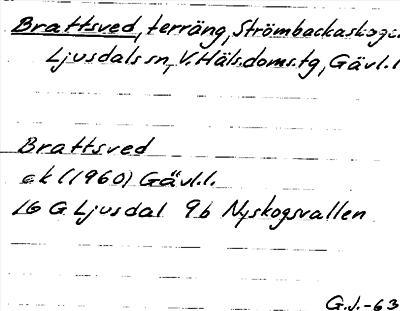 Brattsved, terräng, Strömbackaskoge.
Ljusdals sn, V. Häls. doms. tg, Gävl. l
Brattsved
ek (1960) Gävl. l.
16 G Ljusdal 9b Nyskogsvallen
G. J. -63